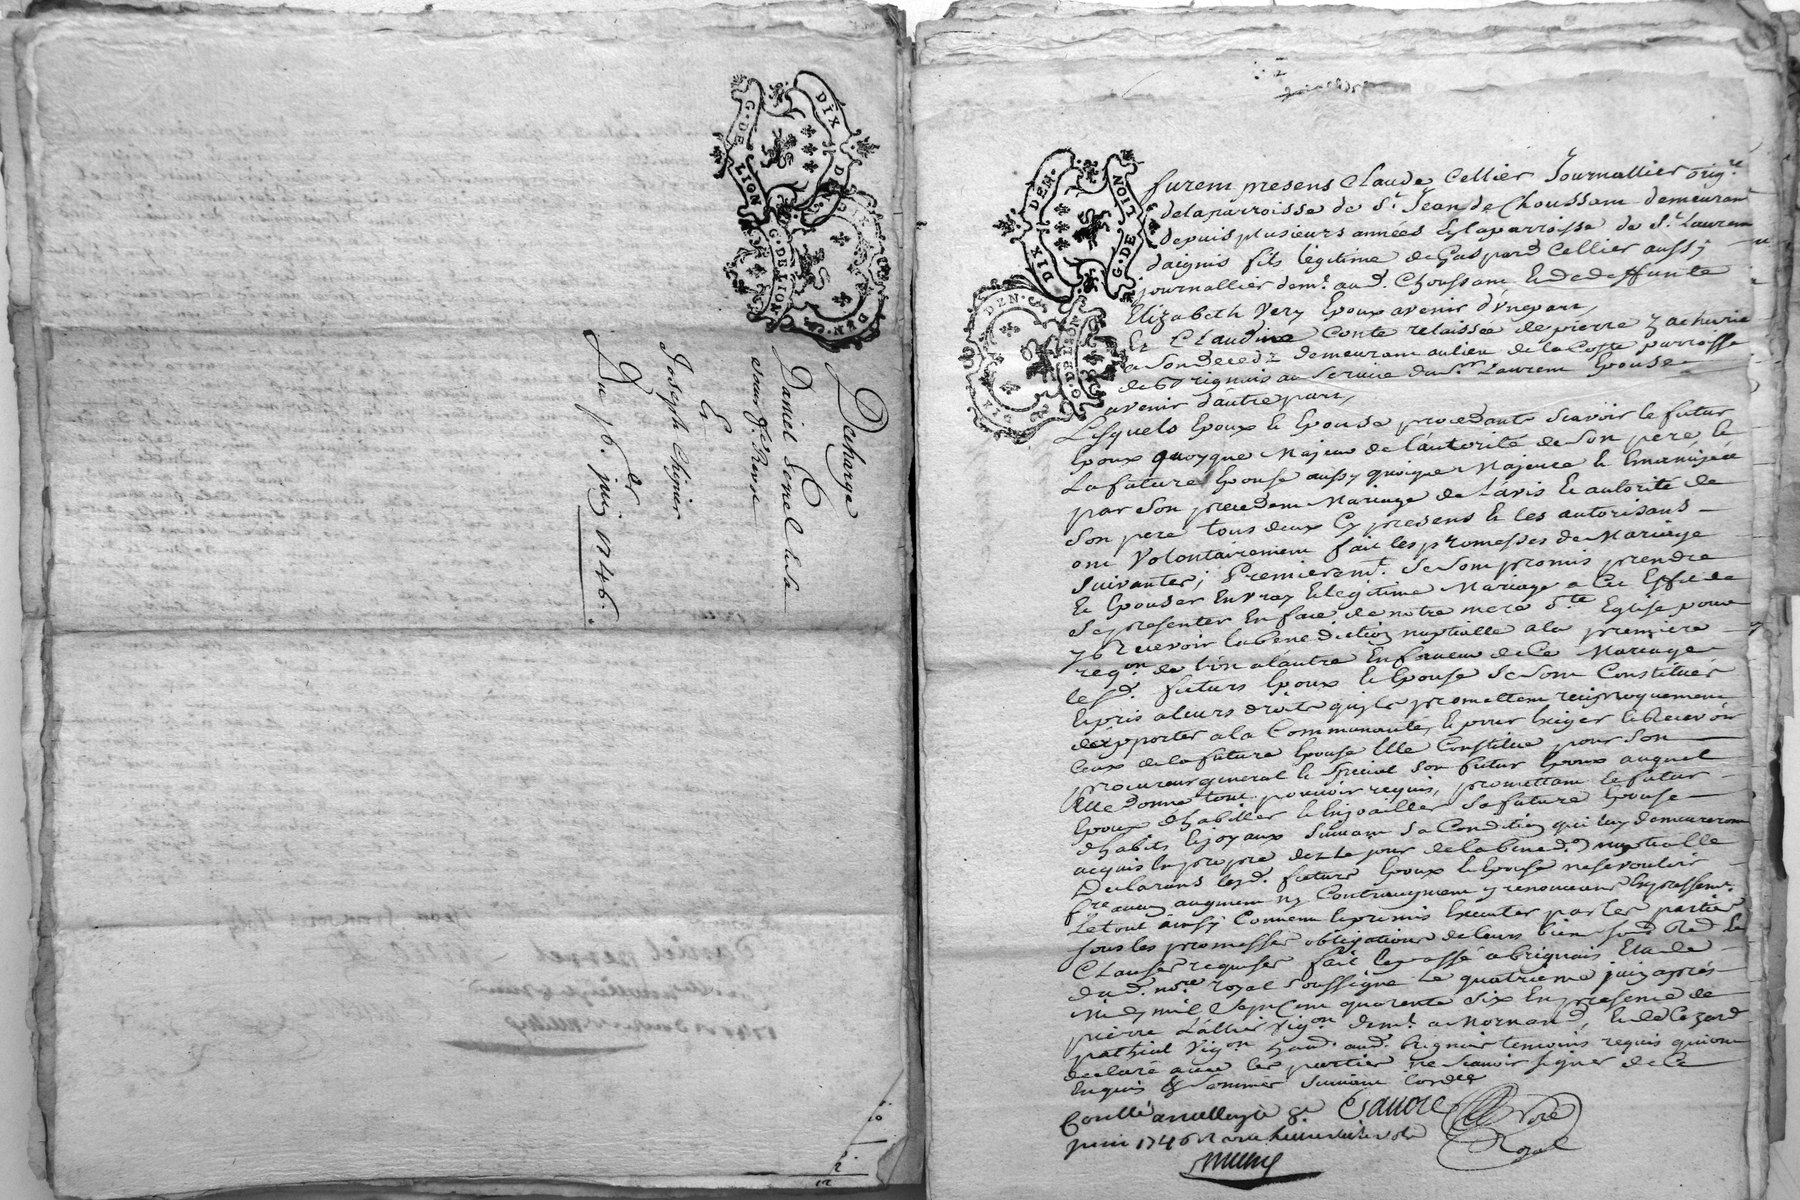 DIX DEN.
G. DE LION
G. DE LION
DEN.
Decharge
Daniel Penel de la
Et
Joseph Chipier
Du 16.
juin 1746.
DIX DEN.
G. DE LION
DEN.
G. DE LION
furent presens Claude Cellier Journallier orig.re
de la parroisse de St. Jean de Choussant demeurant
depuis plusieurs années en la parroisse de St. Laurent
daignis fils legitime de Gaspard Cellier aussy
journallier demt. aud. Choussant et de deffunte
Elizabeth Very Epoux avenir d'vne part,
Et Claudine Conte relaissée de pierre Zacharie
a son decedz demeurant au lieu de la Coste parroisse
de Brignais au service du Sr. Laurent Epouse
avenir d'autre part,
Lesquels Epoux et Epouse procedants scavoir le futur
Epoux quoyque Majeur de l'autorité de son pere et
La future Epouse aussy quoique Majeure et Emancipée
par son precedent Mariage de l'avis et autorité de
son pere tous deux Cy presens et les autorisans
ont Volontairement fait les promesses de Mariage
suivantes; Premieremt. se sont promis prendre
et Epouser En vray et legitime Mariage a Cet Effet de
se presenter En face de notre mere Ste. Eglise pour
y Recevoir la benediction nuptialle a la premiere
reqon. de l'un a l'autre En faveur de Ce Mariage
lesd. futurs Epoux et Epouse se sont Constitués
et pris a leurs droits qu'ils promettent reciproquement
d'apporter a la Communauté, et pour Exiger et Recevoir
Ceux de la future Epouse Elle Constitue pour son
procureur general et special son futur Epoux auquel
Elle donne tout pouvoir requis, promettant le futur
Epoux d'habiller et Enjoailler sa future Epouse
d'habits et joyaux suivant sa Condition qui luy demeureront
acquis En propre dez le jour de la bened.on nuptialle
Declarans lesd. futurs Epoux et Epouse ne se vouloir
fre aucun augment ny Contraugment y renonceant Expressemt.
Le tout ainsy Convenu et promis Executer par les parties
sous les promesses obligations de leurs biens
Clauses requises fait et passé a brignais Etude
du d. nore. royal soussigné Le quatrieme juin apres
Midy mil Sept Cent quarente six En presence de
pierre Lallier Vigon. demt. a Mornand, et de Cezard
pathiul Vigon. aud. brignais temoins requis qui ont
declaré avec les parties ne scavoir signer de Ce
Enquis & sommés suivant
juin 1746
Royal